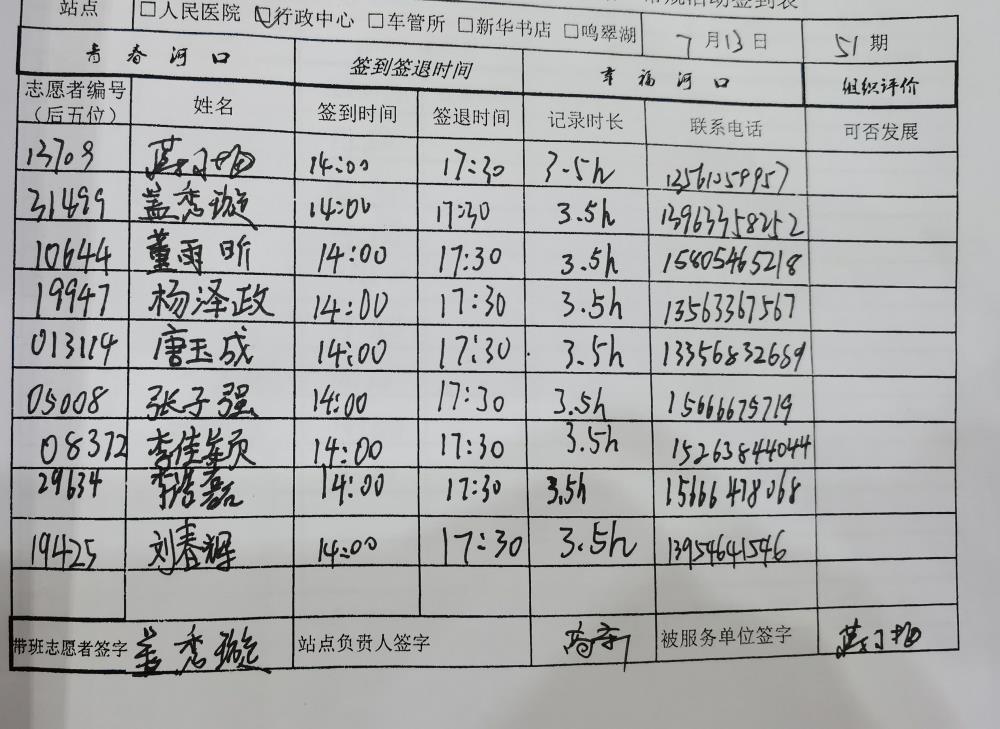 常规活动签到表
站点 □人民医院 ☑行政中心 □车管所 □新华书店 □鸣翠湖 7月13日 51期
青春河口 签到签退时间 幸福河口 组织评价
志愿者编号（后五位） 姓名 签到时间 签退时间 记录时长 联系电话 可否发展
13709 14:00 17:30 3.5h 13561059957
31499 盖秀璇 14:00 17:30 3.5h 13963358252
10644 董雨昕 14:00 17:30 3.5h 15805465218
19947 杨泽政 14:00 17:30 3.5h 13563367567
013114 唐玉成 14:00 17:30 3.5h 13356832669
05008 张子强 14:00 17:30 3.5h 15666675719
08372 李佳颖 14:00 17:30 3.5h 15263844044
29634 李浩磊 14:00 17:30 3.5h 15666478068
19425 刘春辉 14:00 17:30 3.5h 13954641546
带班志愿者签字 盖秀璇 站点负责人签字 被服务单位签字